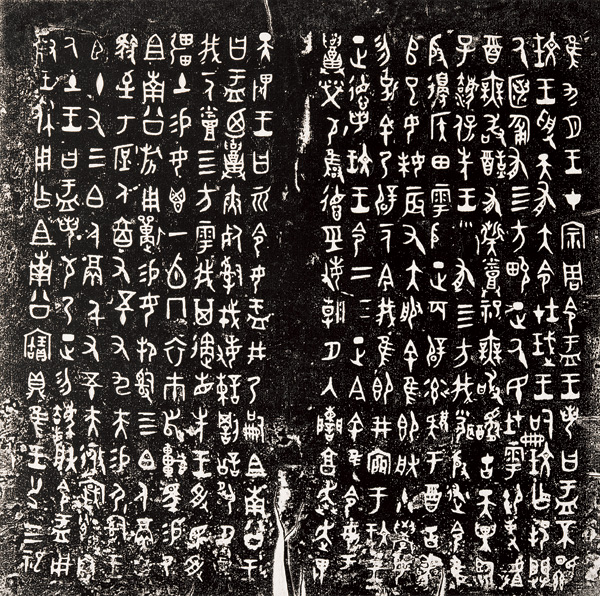 隹九月王才宗周令盂王若曰盂不顯
玟王受天有大令在珷王嗣玟乍邦闢
氒匿匍有四方畯正氒民在雩卸事𠭯
酉無敢酖有祡烝祀無敢𨢩古天異臨
子灋保先王有四方我聞殷述令隹
殷邊侯田雩殷正百辟率肄于酉古喪
𠂤巳女妹辰又大服余隹即朕小學女
勿克余乃辟一人今我隹即井㐭于玟王
正德若玟王令二三正今余隹令女盂
召榮敬雍德巠敏朝夕入讕享奔走畏
天畏王曰而令女盂井乃嗣且南公王
曰盂迺召夾死司戎敏諫罰訟夙夕召
我一人烝四方雩我其遹省先王受民受
疆土易女鬯一卣冂衣巿舄車馬易乃
且南公旂用狩易女邦司四白人鬲自
馭至于庶人六百又五十又九夫易尸司王
臣十又三白人鬲千又五十夫遷自
氒土王曰盂若敬乃正勿灋朕令盂用
對王休用乍且南公寶鼎隹王廿又三祀